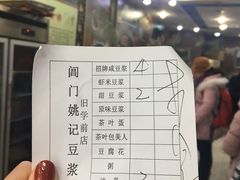 阊门姚记豆浆
旧学前店
招牌咸豆浆 4
虾米豆浆
甜豆浆 2
原味豆浆
茶叶蛋
茶叶包美人
豆腐花
粥